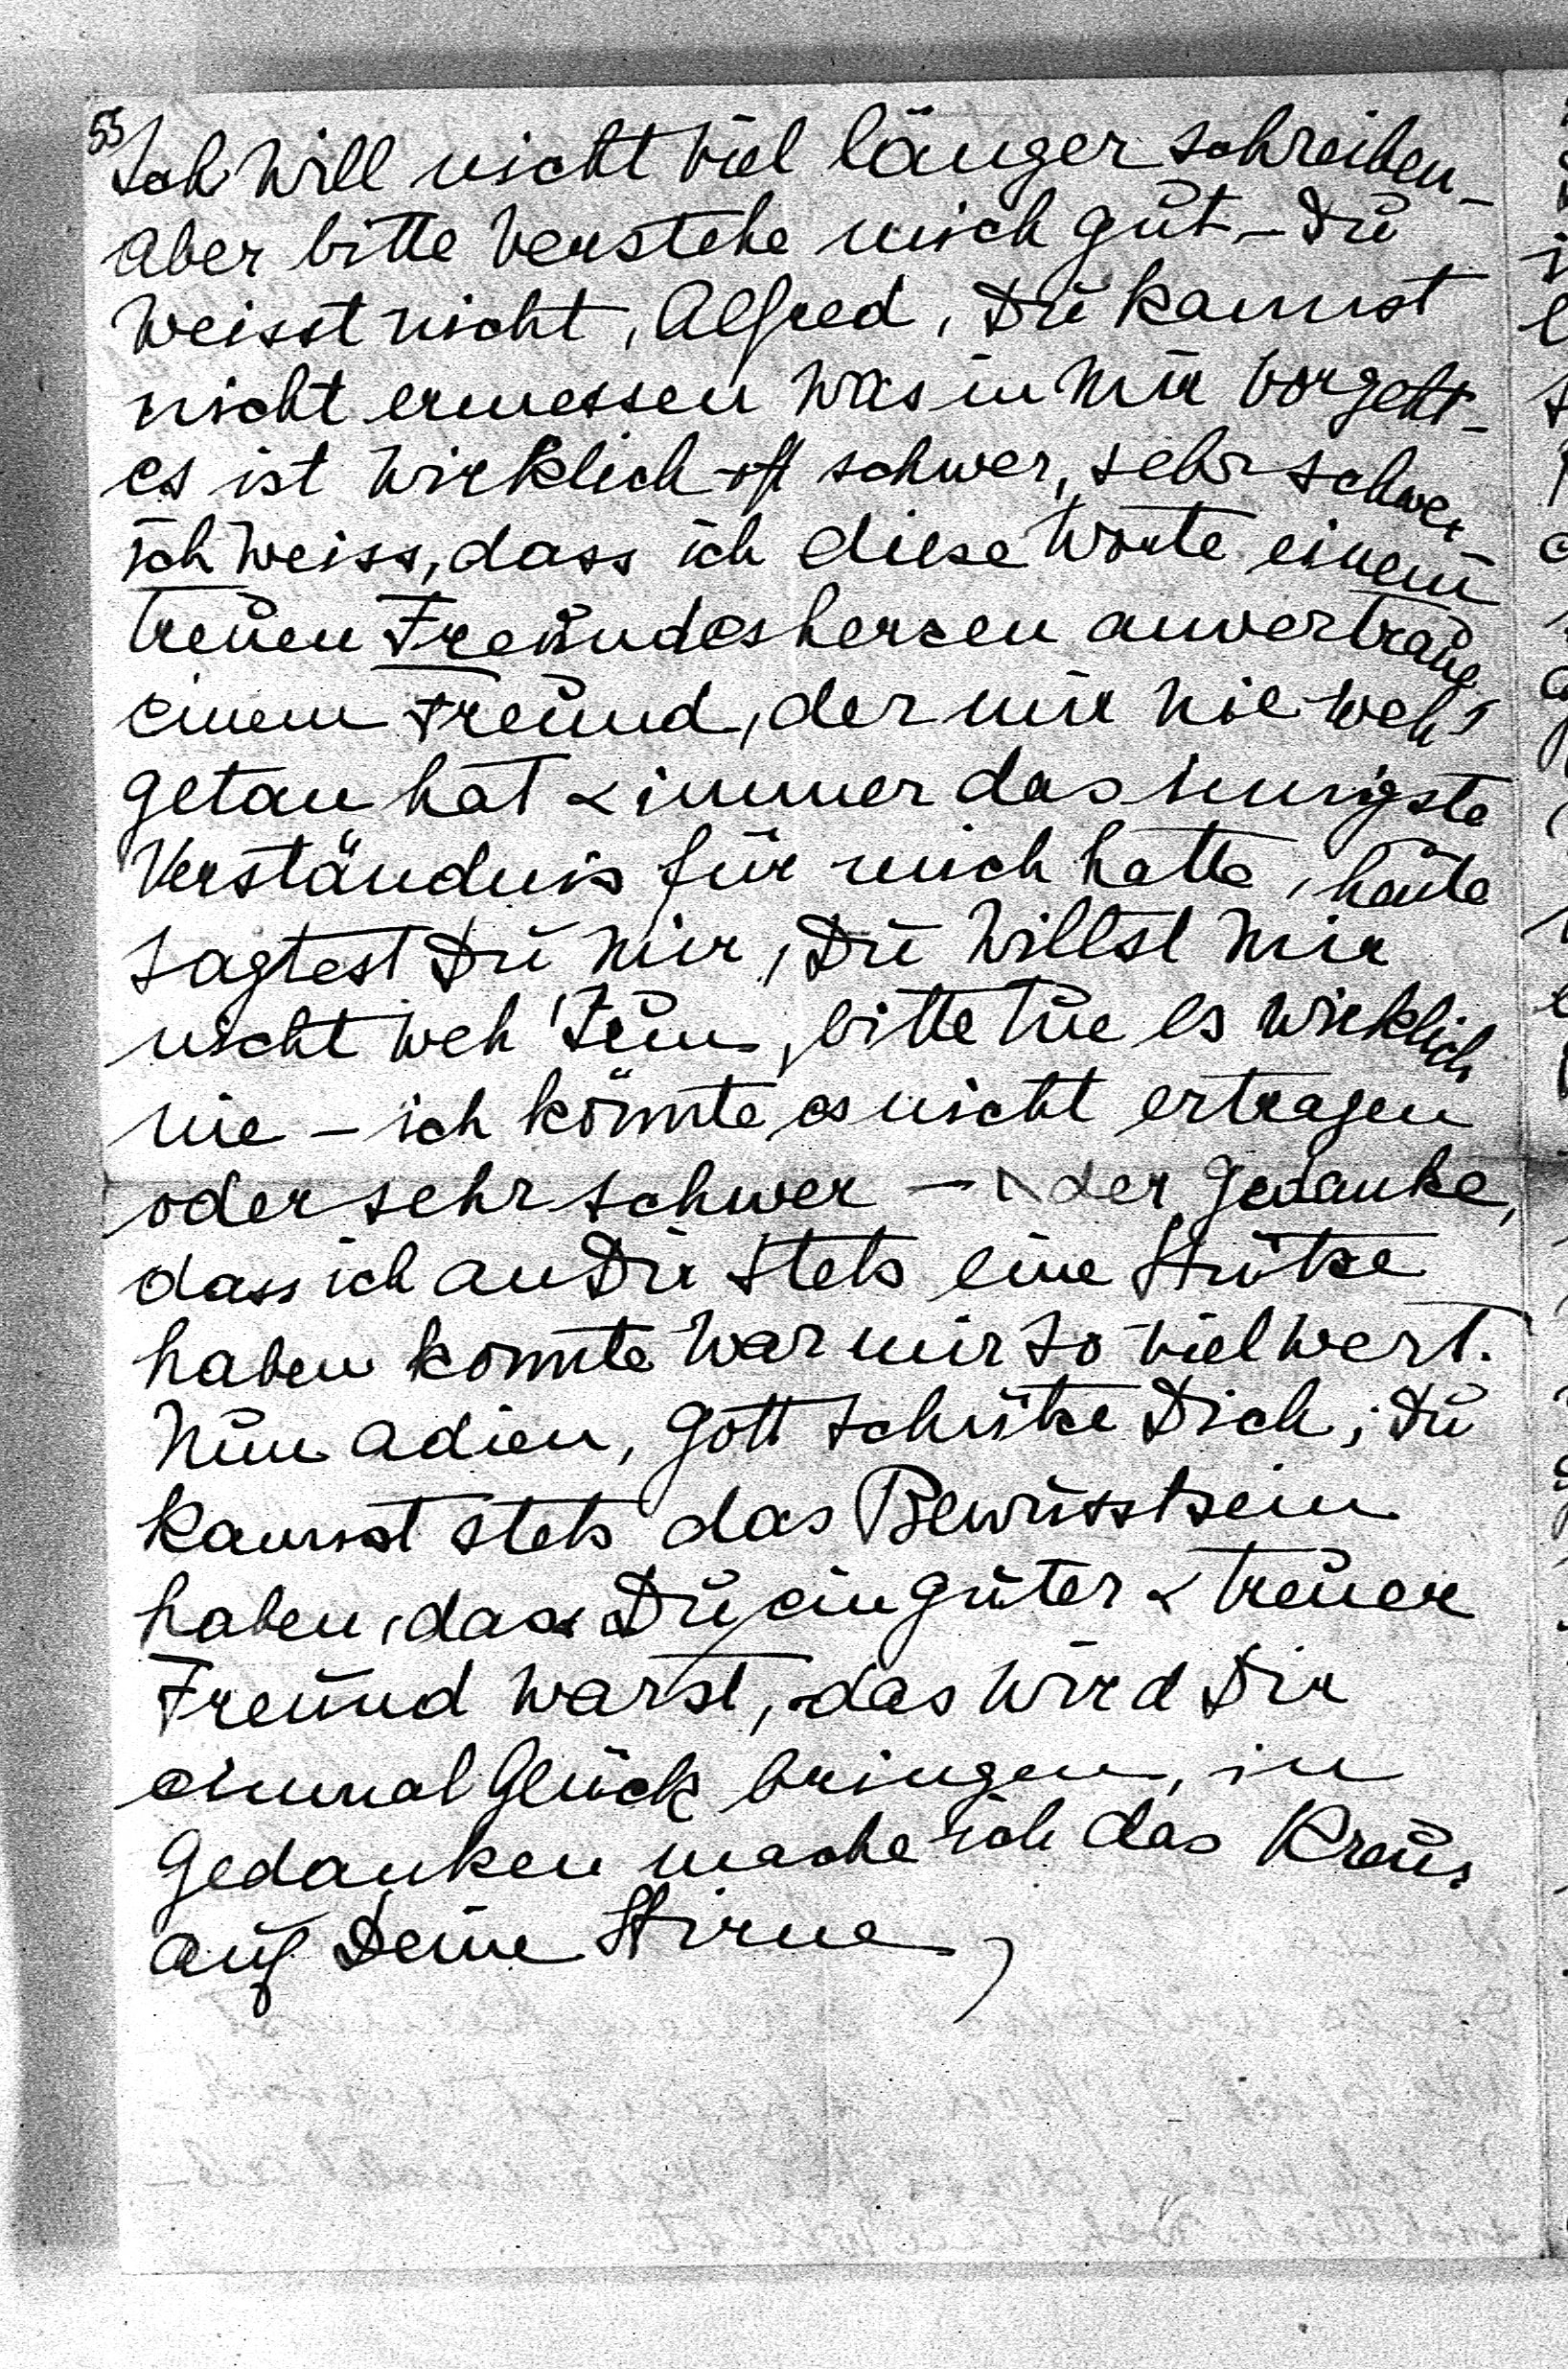 55
Ich will nicht viel länger schreiben –
aber bitte verstehe mich gut – Du
weisst nicht, Alfred, Du kannst
nicht ermessen was in mir vorgeht –
es ist wirklich oft schwer, sehr schwer –
ich weiss, dass ich diese Worte einem
treuen Freundesherzen anvertraue
einem Freund, der mir nie weh
getan hat & immer das innigste
Verständnis für mich hatte, heute
sagtest Du mir, Du willst mir
nicht weh tun, bitte tue es wirklich
nie – ich könnte es nicht ertragen
oder sehr schwer – der Gedanke,
dass ich an Dir stets eine Stütze
haben konnte war mir so viel wert.
Nun adieu, Gott schütze Dich; Du
kannst stets das Bewusstsein
haben, dass Du ein guter & treuer
Freund warst, das wird Dir
einmal Glück bringen, in
Gedanken mache ich das Kreuz
auf Deine Stirne,